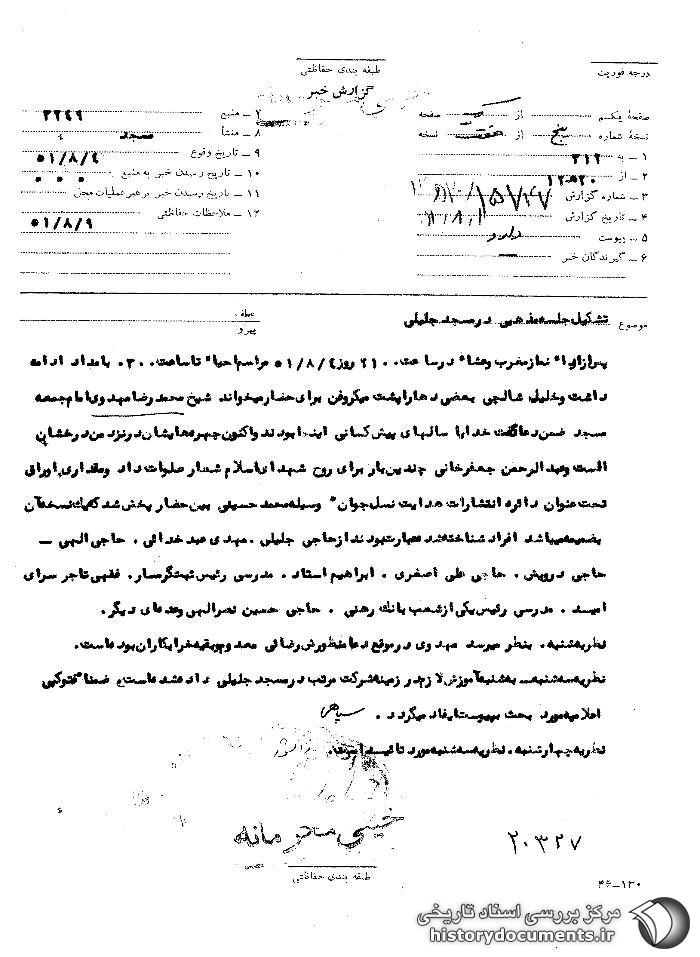 طبقه بندی حفاظتی
گزارش خبر
درجه فوریت
صفحهٔ یکم از یک صفحه
نسخهٔ شماره پنج از هفت نسخه
۱ ـ به ۳۱۲
۲ ـ از ۱۲۵۲۰
۳ ـ شماره گزارش
۴ ـ تاریخ گزارش
۵ ـ پیوست دارد
۶ ـ گیرندگان خبر
۷ ـ منبع ۲۲۴۹
۸ ـ منشأ مسجد
۹ ـ تاریخ وقوع ۵۱/۸/۴
۱۰ ـ تاریخ رسیدن خبر به منبع
۱۱ ـ تاریخ رسیدن خبر برهبر عملیات محل
۱۲ ـ ملاحظات حفاظتی
۵۱/۸/۹
موضوع تشکیل جلسه مذهبی در مسجد جلیلی
عطف
پیرو
پس از اداء نماز مغرب و عشاء در ساعت ۲۱۰۰ روز ۵۱/۸/۴ مراسم احیاء تا ساعت ۰۳۰۰ بامداد ادامه
داشت و خلیل شالچی بعضی دعاها را پشت میکروفن برای حضار میخواند شیخ محمد رضا مهدوی امام جمعه
مسجد ضمن دعا گفت خدایا سالهای پیش کسانی اینجا بودند و اکنون چهره‌هایشان در نزد من درخشان
است و عبدالرحمن جعفرخانی چندین بار برای روح شهدای اسلام شعار صلوات داد و مقداری اوراق
تحت عنوان دائره انتشارات هدایت نسل جوان" وسیله محمد حسینی بین حضار پخش شد که یک نسخه آن
بضمیمه میباشد افراد شناخته شده عبارت بودند از حاجی جلیلی ، مهدی عبد خدائی ، حاجی الهی ـ
حاجی درویش ، حاجی علی اصغری ، ابراهیم استاد ، مدرسی رئیس ثبت گرمسار ، فقهی تاجر سرای
امید ، مدرسی رئیس یکی از شعب بانک رهنی ، حاجی حسین نصرالهی و عده‌ای دیگر .
نظریه شنبه . بنظر میرسد مهدوی در موقع دعا منظورش رضائی معدوم و بقیه خرابکاران بوده است .
نظریه سه شنبه . به شنبه آموزش لازم در زمینه شرکت مرتب در مسجد جلیلی داده شده است و ضمنا فتوکپی
اعلامیه مورد بحث به پیوست ایفاد میگردد .
نظریه چهارشنبه . نظریه سه شنبه مورد تائید است .
خیلی محرمانه
۲۰۳۲۷
طبقه بندی حفاظتی
۴۶ـ۱۳۰
مرکز بررسی اسناد تاریخی
historydocuments.ir